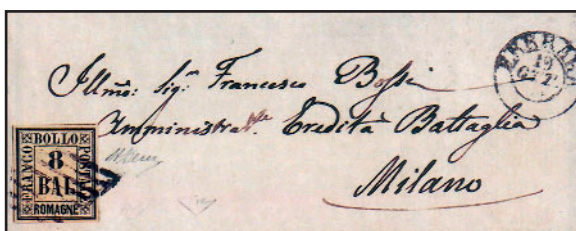 FERRARA
19
OTT
Illmo: Sigr: Francesco Bossi
Amministratre Eredità Battaglia
Milano
BOLLO
FRANCO
POSTALE
8
BAI
ROMAGNE